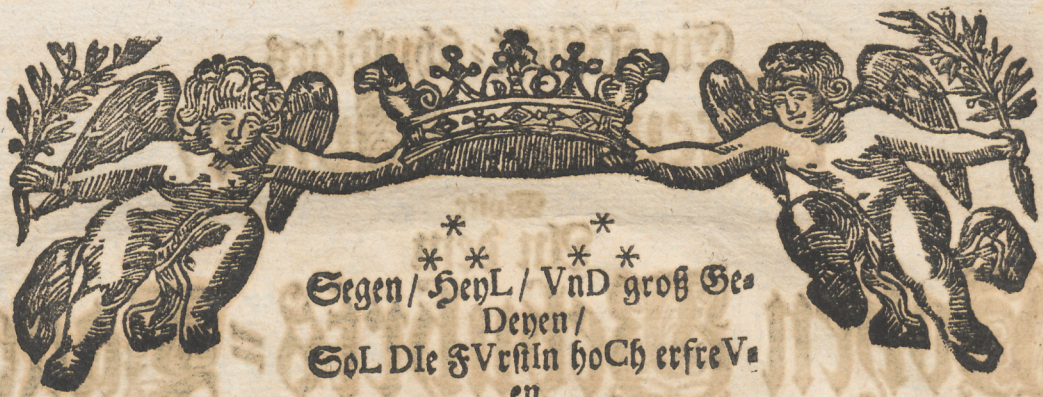 * *
* * * *
Segen / HeyL / VnD groß Ge⸗
Deyen /
SoL DIe FVrstIn hoCh erfreV⸗
en